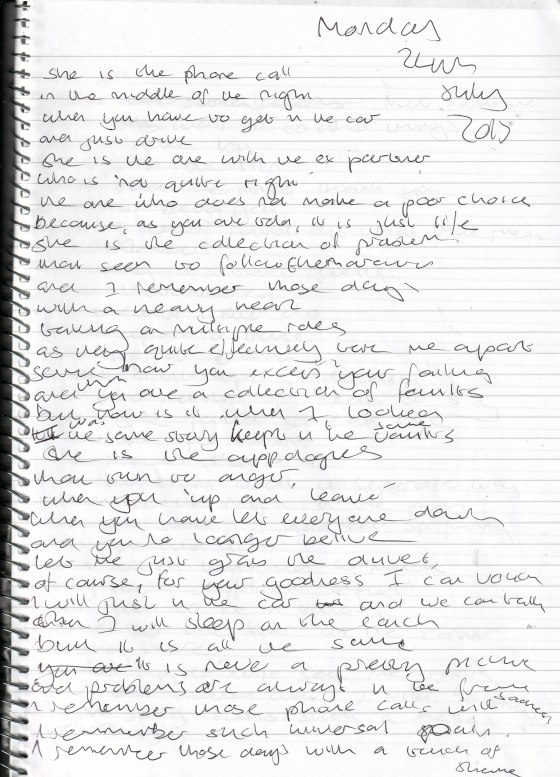 Monday
July
she is the phone call
in the middle of the night
when you have to get in the car
and just drive
she is the one with the ex partner
who is 'not quite right'
the one who does not make a poor choice
because, as you are told, it is just life
she is the collection of problems
that seem to follow themselves
and I remember those days
with a heavy heart
taking on multiple roles
as they quite effectively tore me apart
some how you excers your failing
and up are a collection of families
but how is it when I looked
the same story kept in the same
she is the apologies
that turn to anger,
when you 'up and leave'
when you have let everyone down
and you no longer believe
let me just grab the duvet,
of course, for your goodness I can vouch
I will just in the car and we can talk
I will sleep on the couch
but it is all the same
it is never a pretty picture
and problems are always in the frame
I remember those phone calls with sadness,
I remember such universal
I remember those days with a touch of
shame